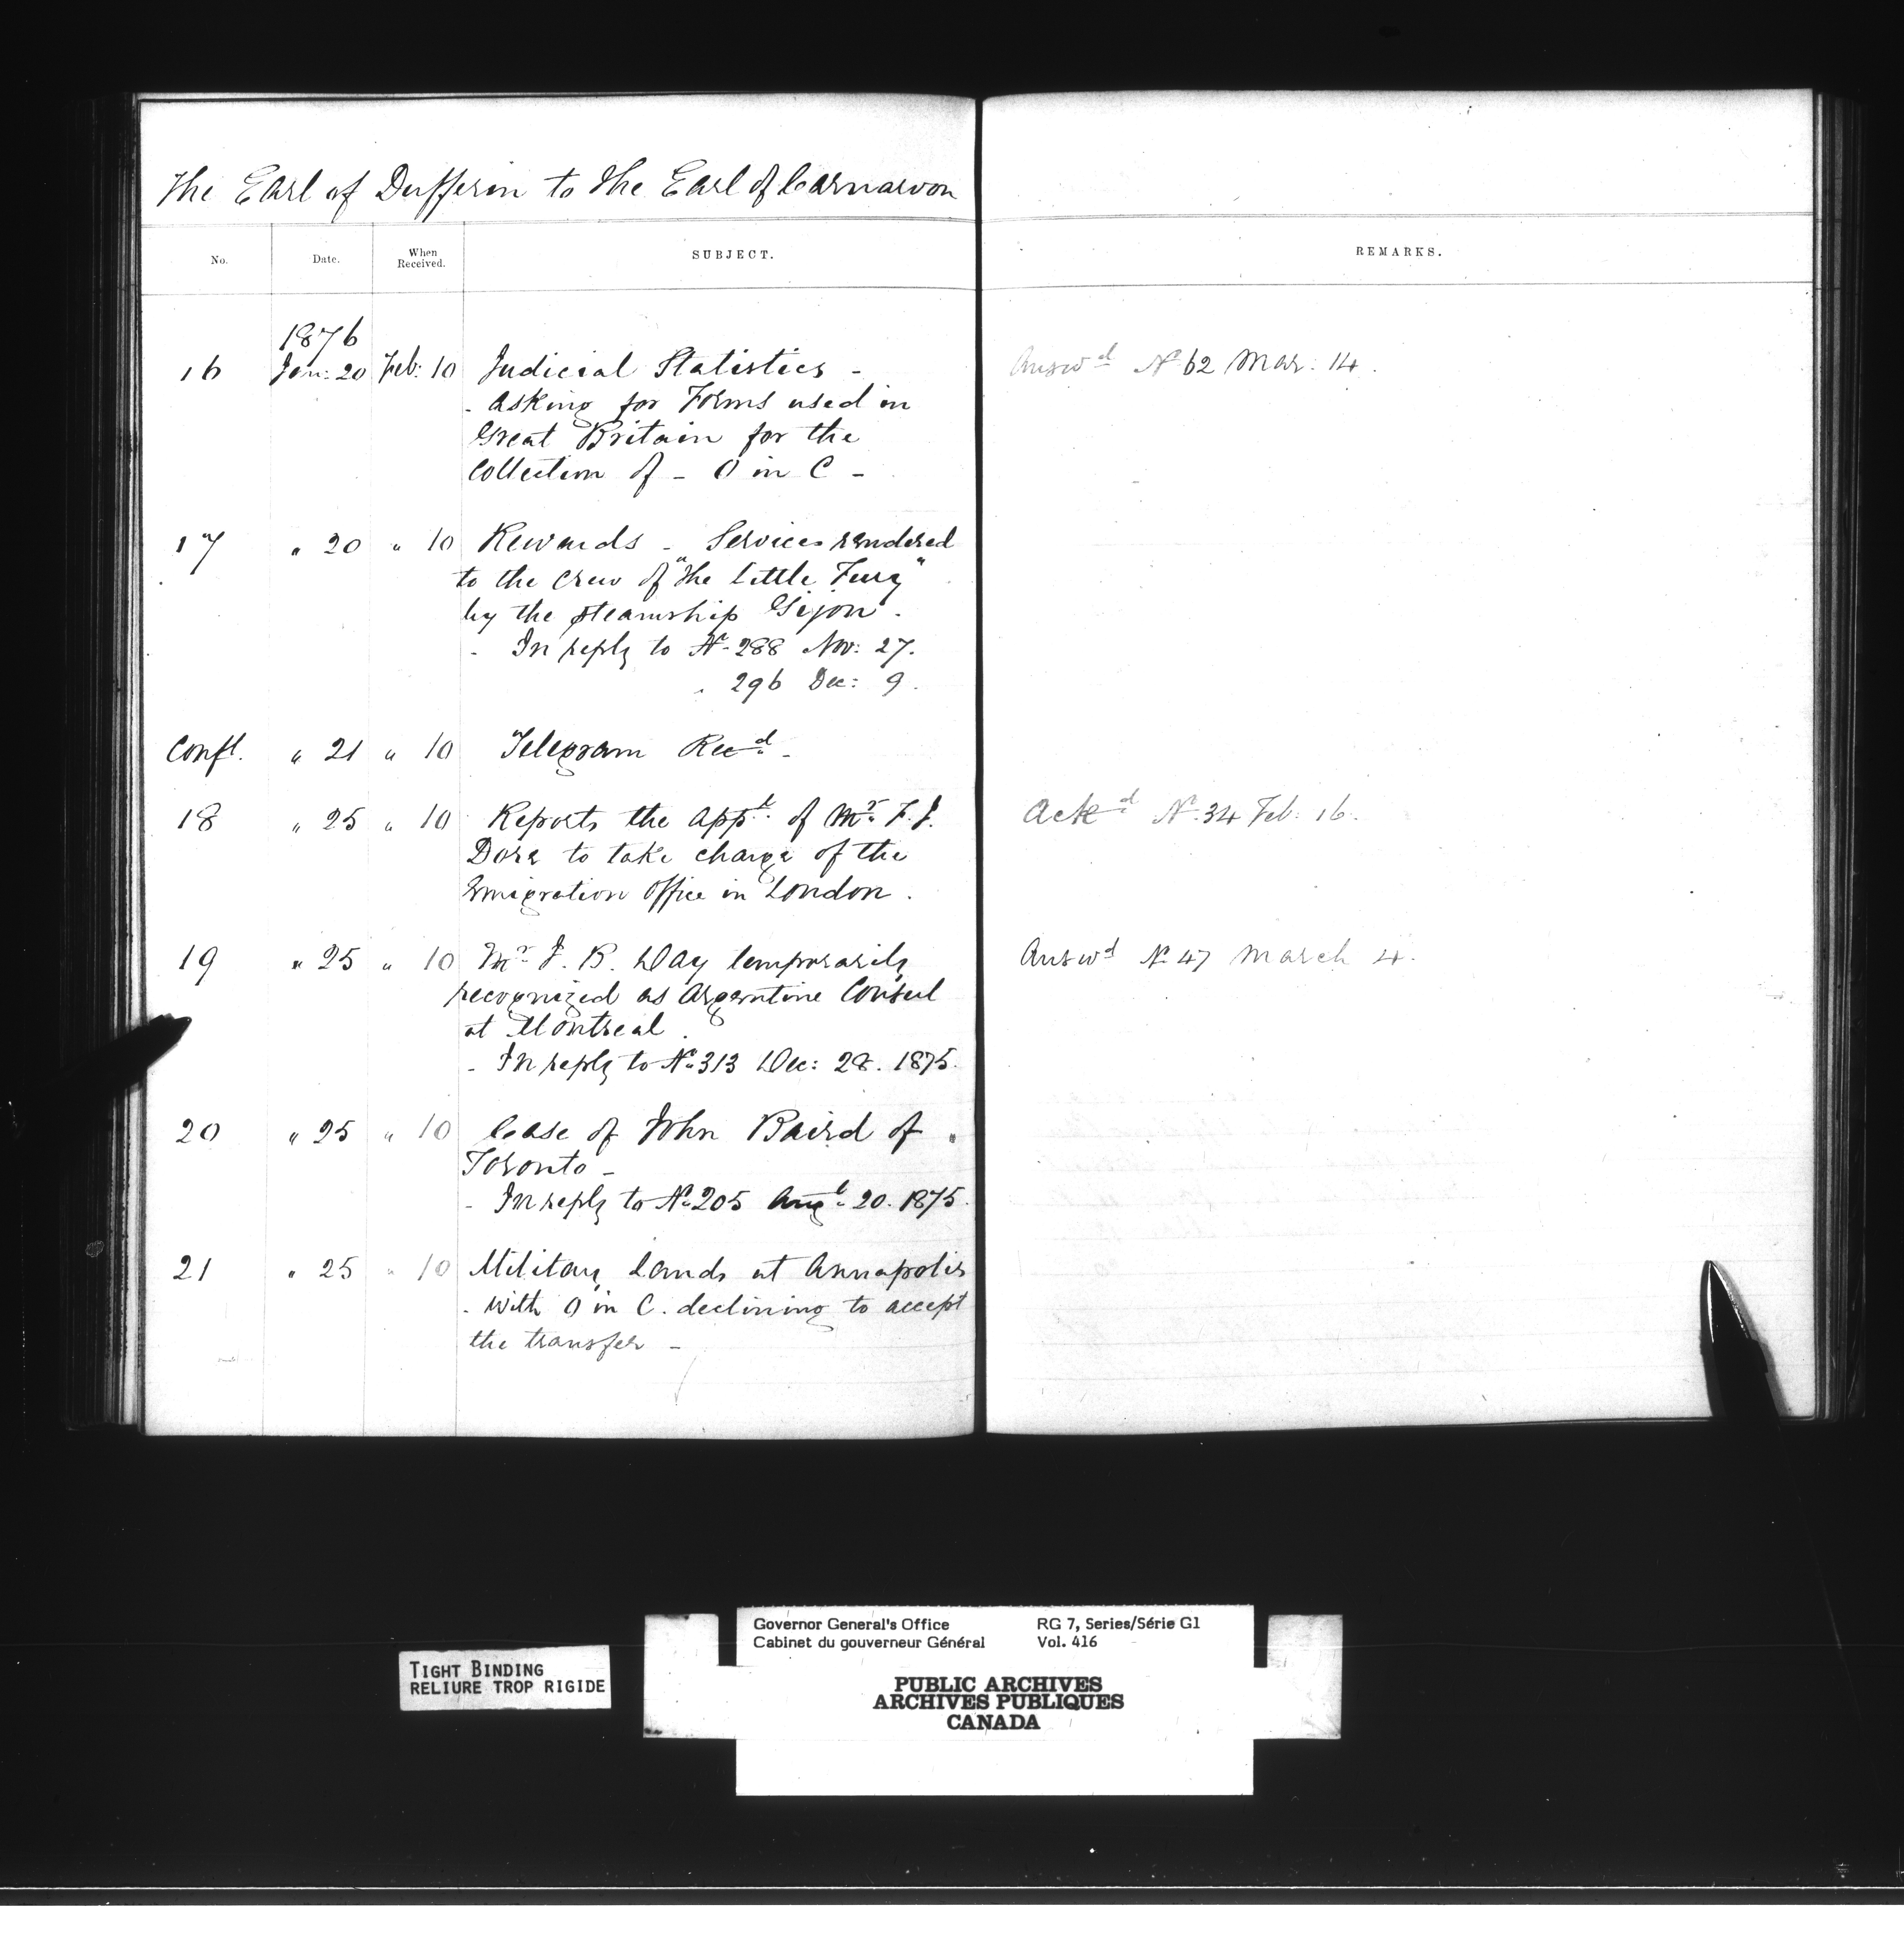 The Earl of Dufferin to the Earl of Carnarvon
No. Date. When Received. SUBJECT. REMARKS.
1876
16 Jan: 20 Feb: 10 Judicial Statistics - Answd No 62 Mar: 14.
- Asking for Forms used in
Great Britain for the
Collection of - O in C -
17 " 20 " 10 Rewards - Services rendered
to the crew of "The Little Fury"
by the steamship Gijon.
- In reply to No 288 Nov: 27.
" 296 Dec: 9.
Confl. " 21 " 10 Telegram Recd -
18 " 25 " 10 Reports the appt of Mr F. J. Ackd No 34 Feb: 16.
Dore to take charge of the
Emigration Office in London.
19 " 25 " 10 Mr J. B. Day temporarily Answd No 47 March 4.
recognized as Argentine Consul
at Montreal.
- In reply to No 313 Dec: 28. 1875.
20 " 25 " 10 Case of John Baird of
Toronto -
- In reply to No 205 Augt 20. 1875.
21 " 25 " 10 Military lands at Annapolis
- With O in C. declining to accept
the transfer -
TIGHT BINDING
RELIURE TROP RIGIDE
Governor General's Office RG 7, Series/Série G1
Cabinet du gouverneur Général Vol. 416
PUBLIC ARCHIVES
ARCHIVES PUBLIQUES
CANADA